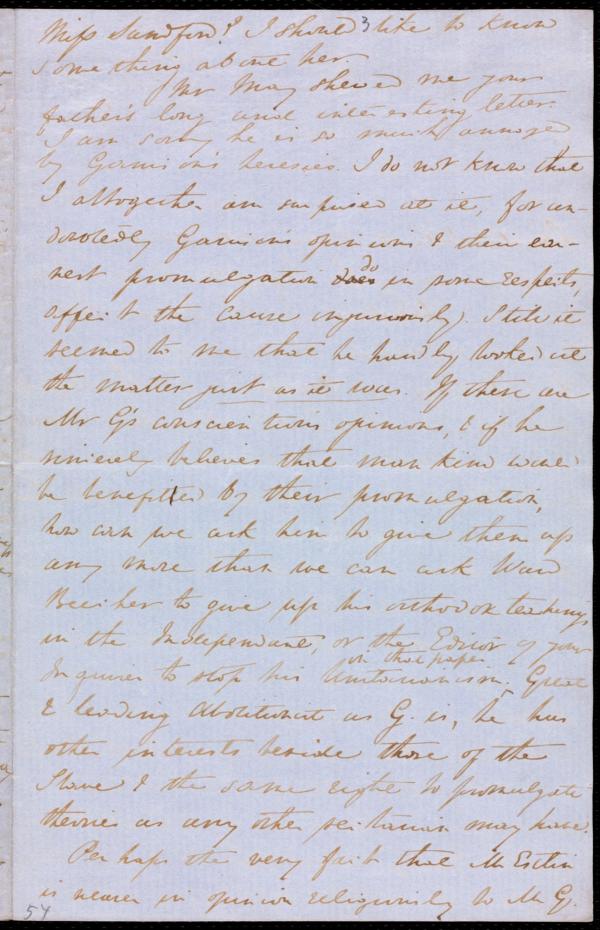 Miss Sandford? I should 3 like to know
something about her.
Mr May shewed me your
father's long and interesting letter.
I am sorry he is so much annoyed
by Garrison's heresies. I do not know that
I altogether am surprised at it, for un-
doubtedly Garrison's opinions & their ear-
nest promulgation does do in some respects,
affect the cause injuriously. Still it
seemed to me that he hardly looked at
the matter just as it was. If these are
Mr G's conscientious opinions, & if he
sincerely believes that mankind would
be benefitted by their promulgation,
how can we ask him to give them up
any more than we can ask Ward
Beecher to give up his orthodox teachings
in the Independent, or the Editor of your
Inquirer to stop his Unitarianism in that paper. Great
& leading Abolitionist as G. is, he has
other interests beside those of the
Slave & the same right to promulgate
theories as any other sectarian may have.
Perhaps the very fact that Mr Estlin
is nearer in opinion religiously to Mr G.
54